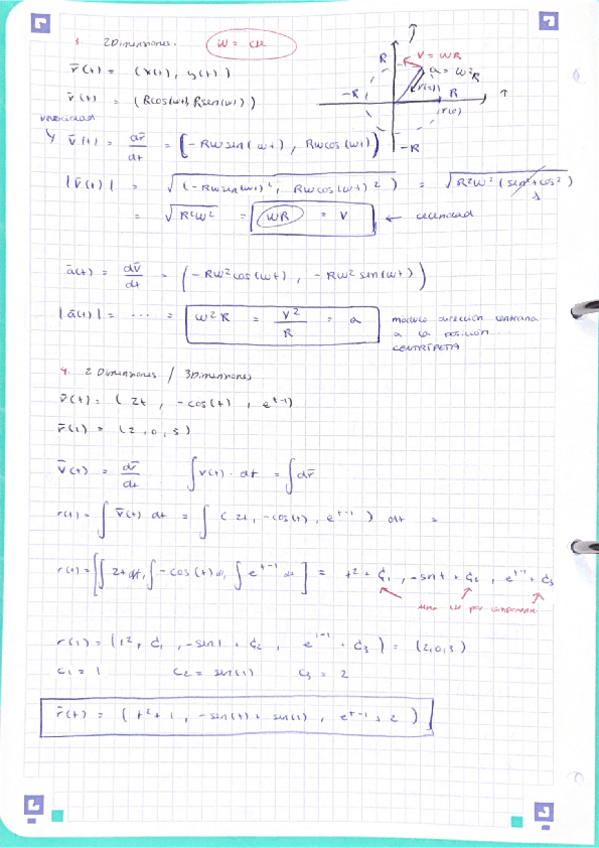 3. 2Dimensiones. W = cte
r̄(t) = (x(t), y(t))
r̄(t) = (Rcos(wt), Rsen(wt))
R V = WR
a = W²R
-R r(t) R
r(0)
-R
velocidad
v̄(t) = dr̄/dt = (-Rwsen(wt), Rwcos(wt))
|v̄(t)| = √((-Rwsen(wt))², Rwcos(wt)²) = √(R²W²(sen²+cos²))
1
= √(R²W²) = WR = V ←
ā(t) = dv̄/dt = (-Rw²cos(wt), -Rw²sen(wt))
|ā(t)| = ... = W²R = V²/R = a
módulo dirección contraria
a la posición
CENTRÍPETA
4. 2 Dimensiones / 3Dimensiones
v̄(t) = (2t, -cos(t), e^(t-1))
r̄(1) = (2, 0, 3)
v̄(t) = dr̄/dt ∫v(t)·dt = ∫dr̄
r(t) = ∫v̄(t) dt = ∫(2t, -cos(t), e^(t-1)) dt =
r(t) = [∫2t dt, ∫-cos(t) dt, ∫e^(t-1) dt] = t² + C₁, -sent + C₂, e^(t-1) + C₃
una cte por componente
r(1) = (1², C₁, -sen1 + C₂, e^(1-1) + C₃) = (2,0,3)
C₁ = 1 C₂ = sen(1) C₃ = 2
r̄(t) = (t²+1, -sen(t)+sen(1), e^(t-1)+2)